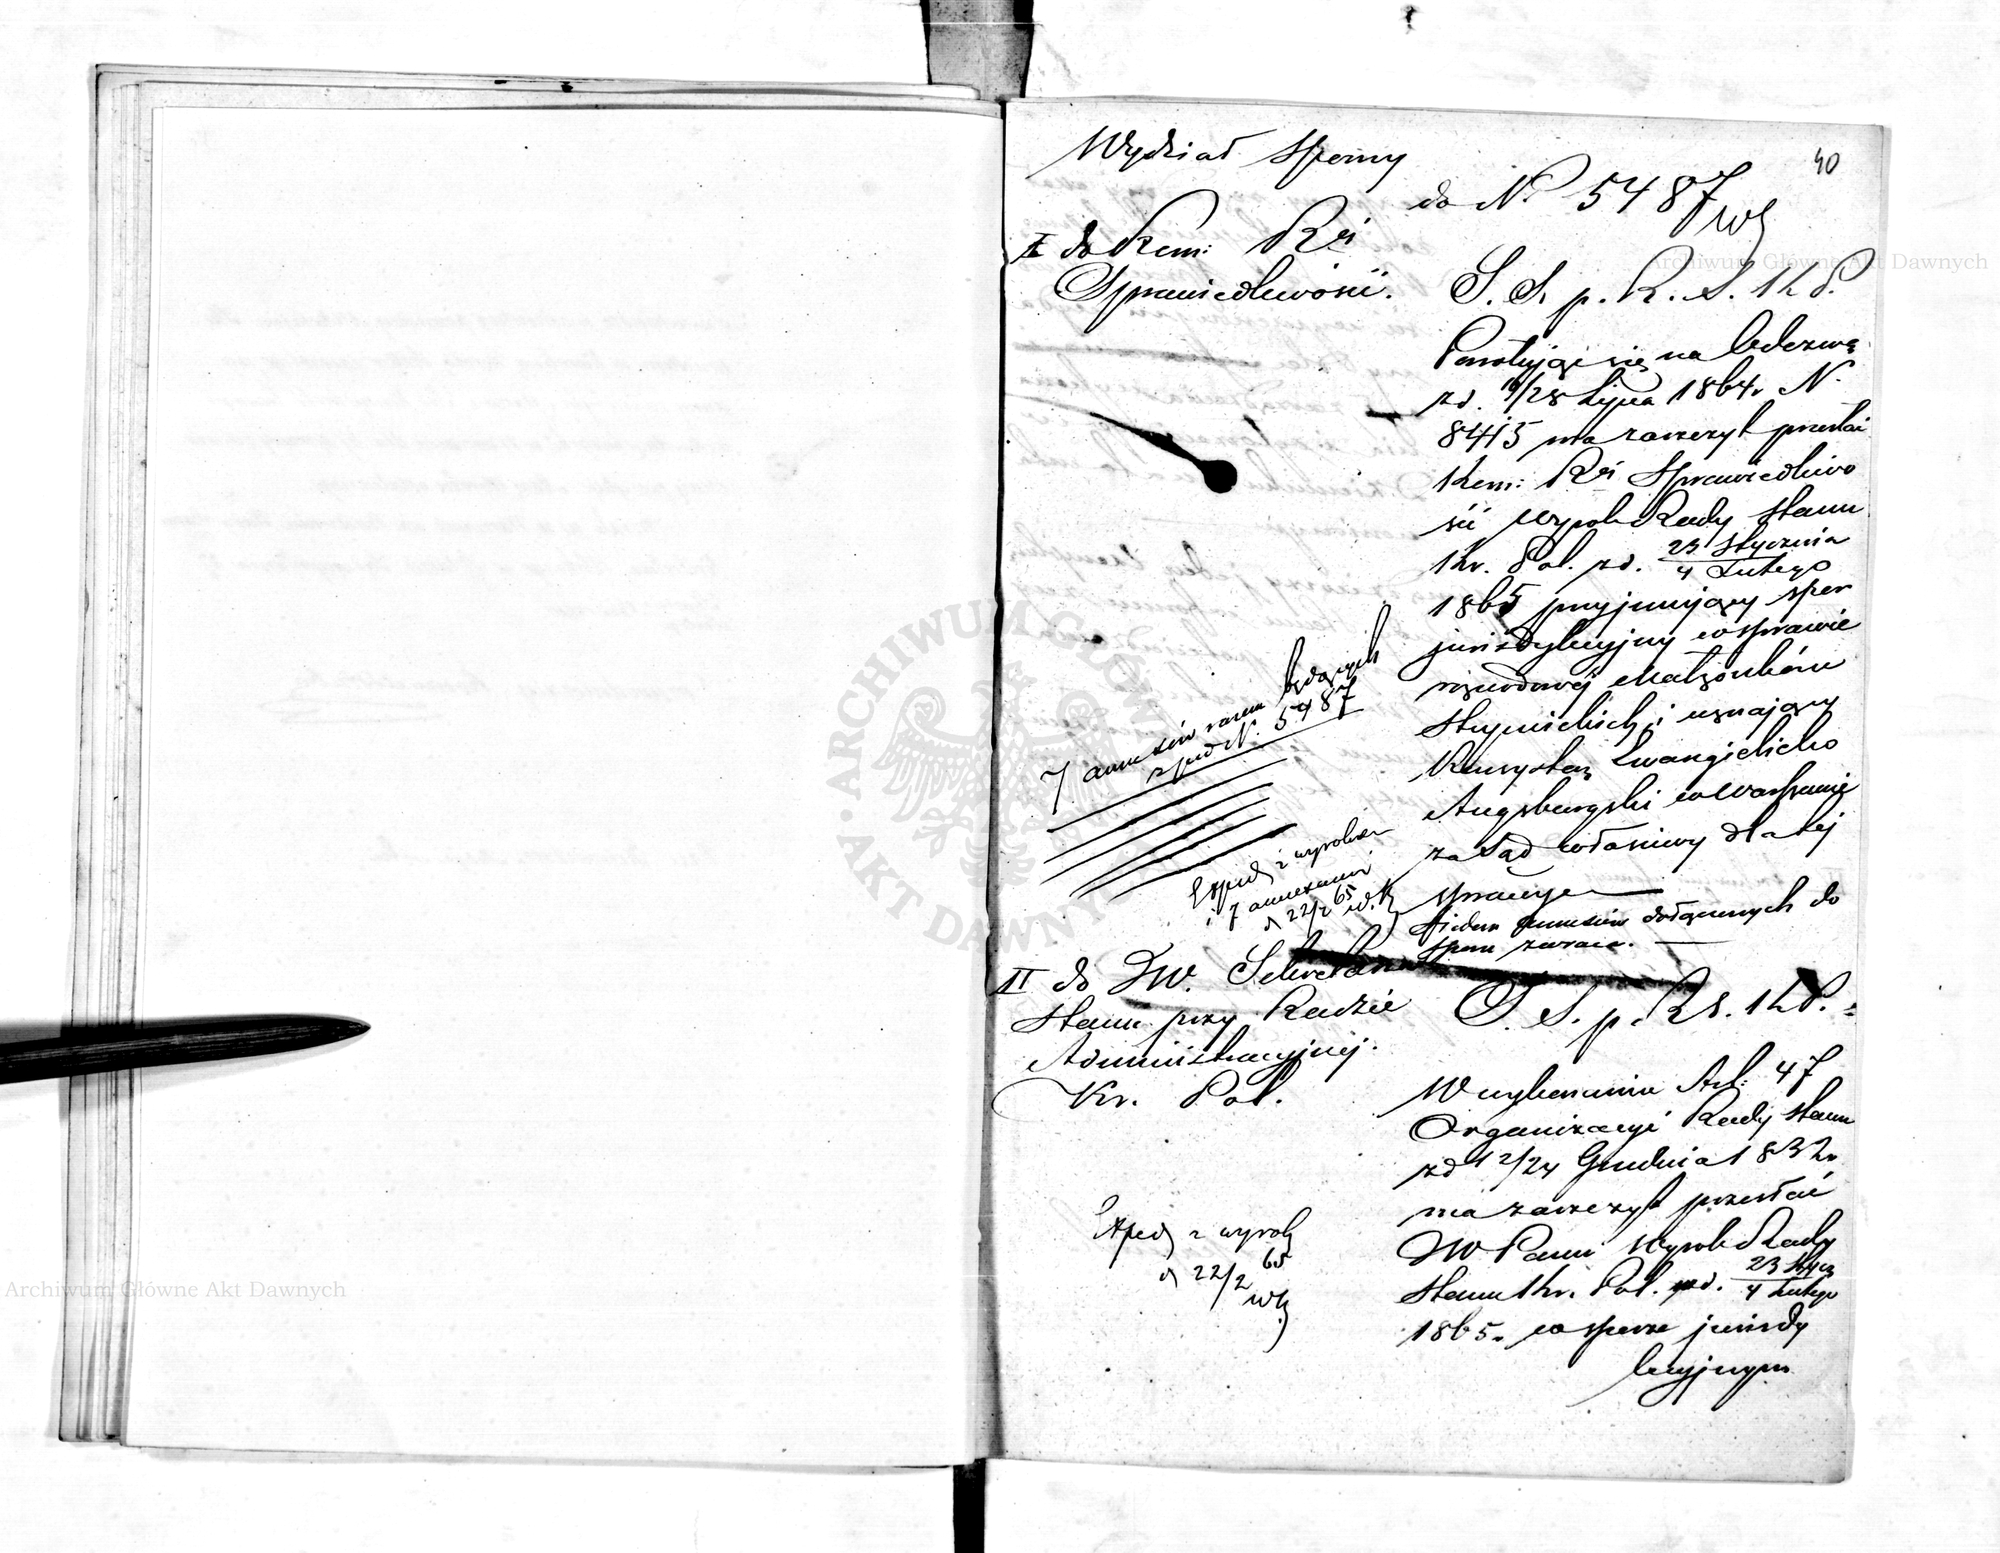 40
Wydział Sporny
do N° 5487
I do Kom: Rzi
Sprawiedliwości.
S. S. p. R. S. K P.
Powołując się na Odezwę
z d. 16/28 Lipca 1864 r. N.
8413 ma zaszczyt przesłać
Kom: Rzi Sprawiedliwo
ści wypis Rady Stanu
Kr. Pol. z d. 23 Stycznia
4 Lutego
1865 przyjmujący spór
jurisdykcyjny w sprawie
rozwodowej Małżonków
i uznający
Konsystorz Ewangielicko
Augsburgski w Warszawie
za Sąd właściwy dla tej
sprawy
Siedem annexów dołączonych do
sporu zwraca.
7 annexów razem będących
z pod N. 5487
Exped z wyrokiem
i 7 annexami
d 22/2 65
II do JW. Sekretarza
Stanu przy Radzie
Administracyjnej
Kr. Pol.
S. S. p. R S. K P.
W wykonaniu Art: 47
Organizacyi Rady Stanu
z d 12/24 Grudnia 1832 r.
ma zaszczyt przesłać
JW Panu Wyrok Rady
Stanu Kr. Pol. z d. 23 Stycz
4 Lutego
1865. w sporze jurisdy
kcyjnym
Exped z wyrok
d 22/2 65
Archiwum Główne Akt Dawnych
Archiwum Główne Akt Dawnych
ARCHIWUM GŁÓWNE AKT DAWNYCH